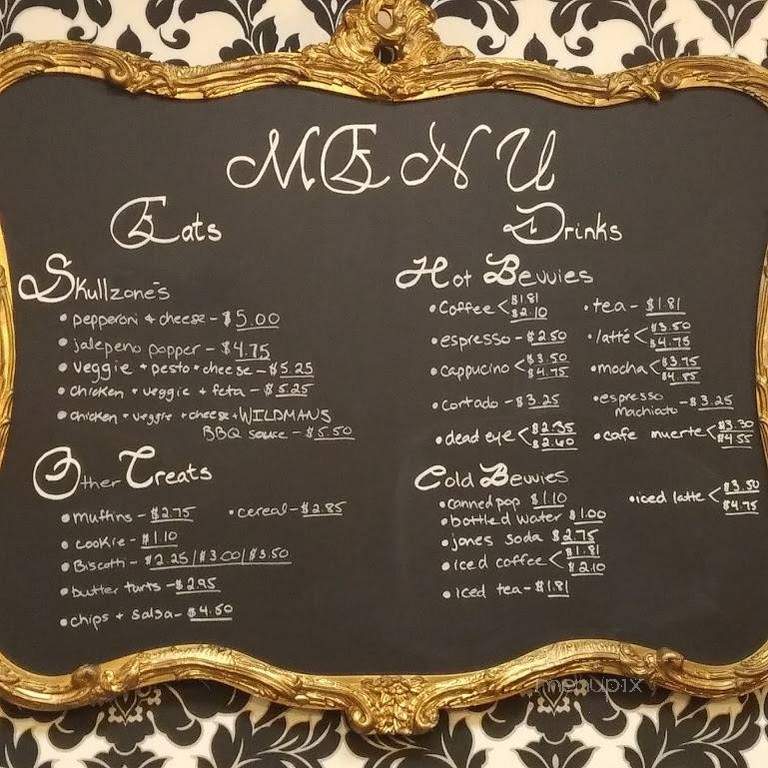 MENU
Eats
Skullzone's
• pepperoni + cheese - $5.00
• jalepeno popper - $4.75
• veggie + pesto + cheese - $5.25
• chicken + veggie + feta - $5.25
• chicken + veggie + cheese + WILDMANS
BBQ sauce - $5.50
Other Treats
• muffins - $2.75 • cereal - $2.85
• cookie - $1.10
• Biscotti - $2.25 / $3.00 / $3.50
• butter tarts - $2.95
• chips + salsa - $4.50
Drinks
Hot Bevvies
• Coffee < $1.81 $2.10 • tea - $1.81
• espresso - $2.50 • latté < $3.50 $4.75
• cappucino < $3.50 $4.75 • mocha < $3.75 $4.85
• cortado - $3.25 • espresso machiato - $3.25
• dead eye < $2.35 $2.60 • cafe muerte < $3.30 $4.55
Cold Bevvies
• canned pop $1.10 • iced latte < $3.50 $4.75
• bottled water $1.00
• jones soda $2.75
• iced coffee < $1.81 $2.10
• iced tea - $1.81
menupix